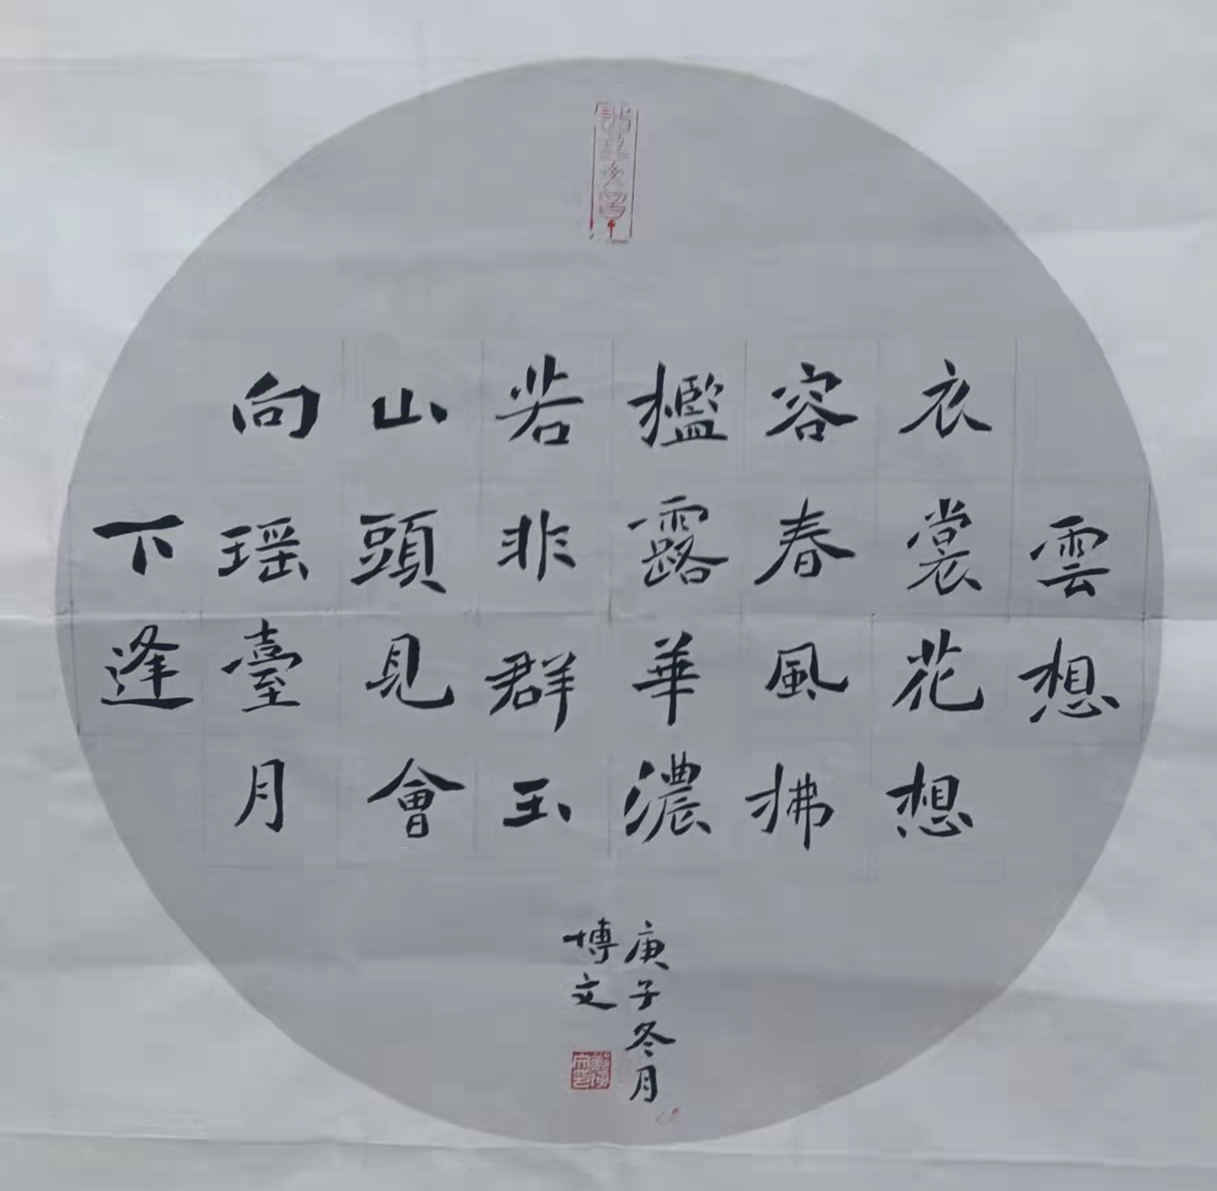 雲想
衣裳花想
容春風拂
檻露華濃
若非群玉
山頭見會
向瑶臺月
下逢
庚子冬月
博文